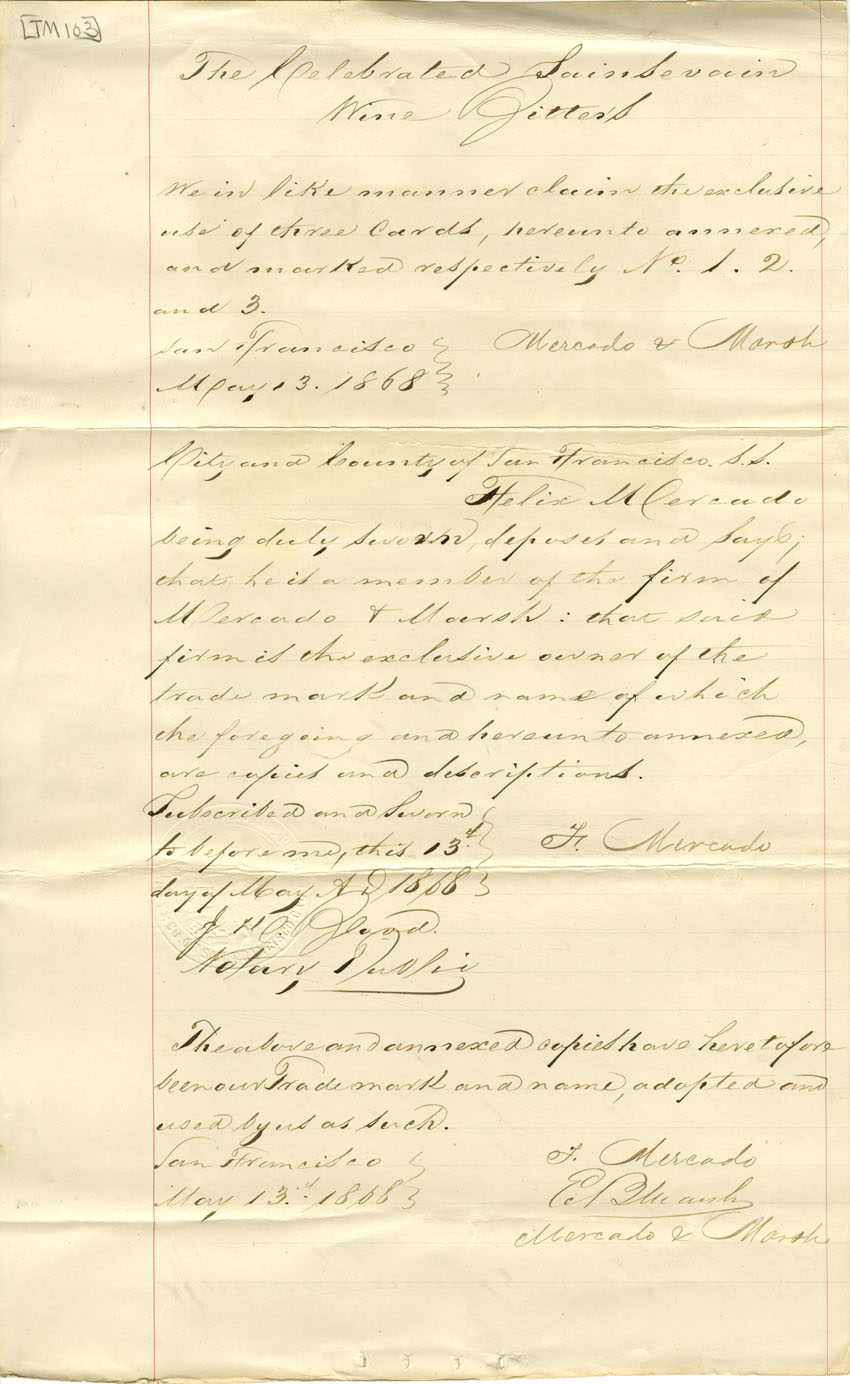 [TM 103]
The Celebrated Sainsevain
Wine Bitters
We in like manner claim the exclusive
use of three Cards, hereunto annexed,
and marked respectively No. 1. 2.
and 3.
San Francisco } Mercado & Marsh
May 13. 1868 }
City and County of San Francisco. S.S.
Felix Mercado
being duly sworn, deposes and says;
that he is a member of the firm of
Mercado & Marsh: that said
firm is the exclusive owner of the
trade mark and name of which
the foregoing and hereunto annexed,
are copies and descriptions.
Subscribed and Sworn }
to before me, this 13th } F. Mercado
day of May A.D 1868 }
J. H. Blood.
Notary Public
The above and annexed copies have heretofore
been our Trade mark and name, adopted and
used by us as such.
San Francisco } F. Mercado
May 13th 1868 } E B Marsh
Mercado & Marsh